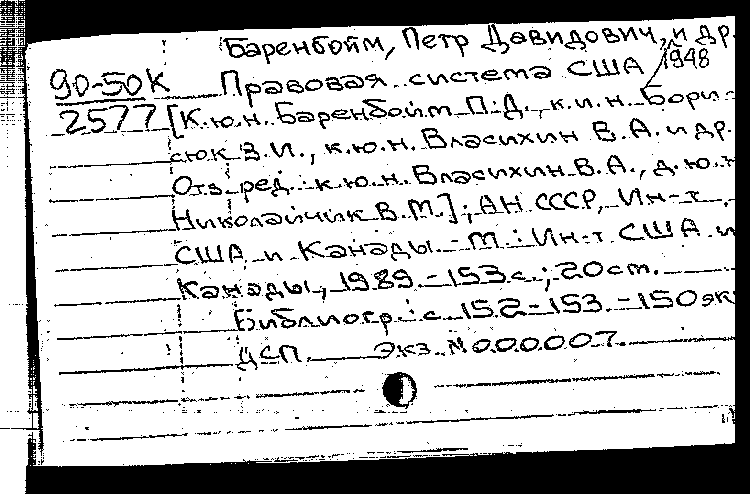 Баренбойм, Петр Давидович, и др.
90-50К Правовая система США 1948
2577 [К.ю.н. Баренбойм П.Д., к.и.н. Бори-
сюк В.И., к.ю.н. Власихин В.А. и др.
Отв. ред.: к.ю.н. Власихин В.А., д.ю.н
Николайчик В.М.]; АН СССР, Ин-т
США и Канады. - М.: Ин-т США и
Канады, 1989. - 153 с.; 20 см.
Библиогр.: с 152-153. - 150 эк
ДСП. Экз. № 000007.